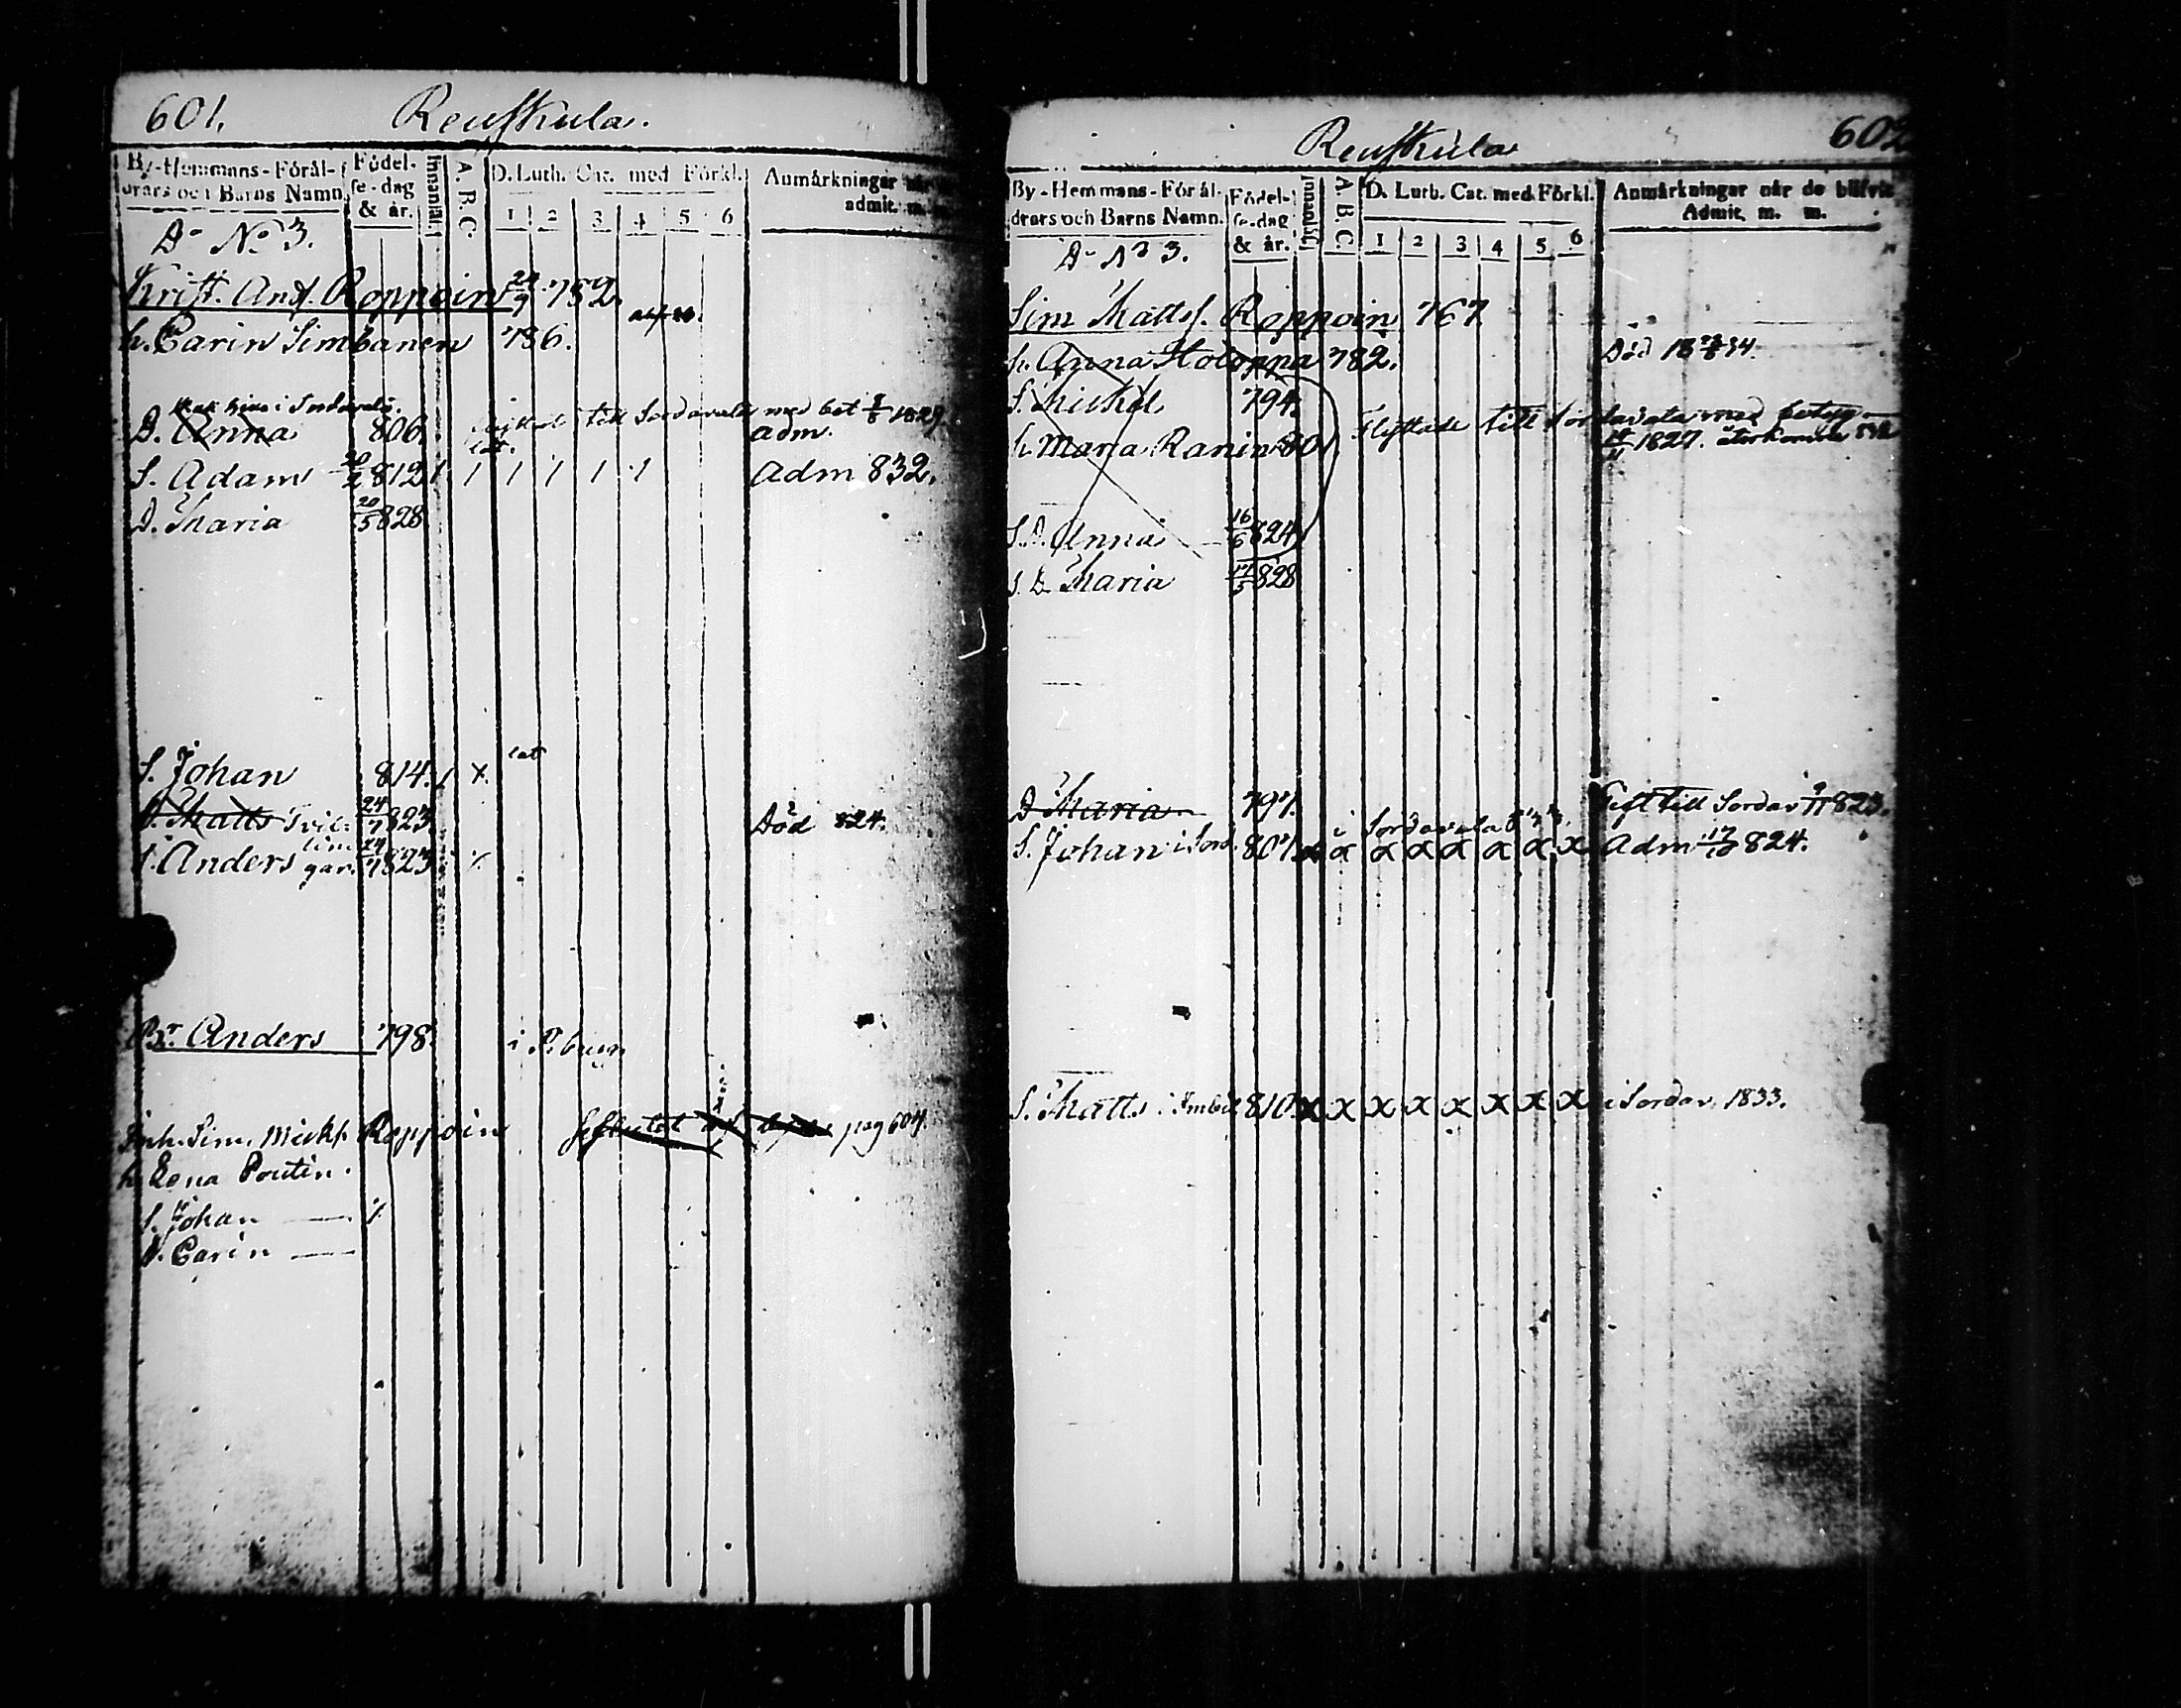 601. Reuskula.
By-Hemmans-Föräl-
drars och Barns Namn.
Födel-
se-dag
& år.
Innanläs.
A. B. C.
D. Luth. Cat. med Förkl.
1 2 3 4 5 6
Anmärkningar när
admit. m.
Do No 3.
Krist. And. Roppoin 24/9 752.
h. Carin Simbanen 786.
i Sordavala.
D. Anna 806. till Sordavala med bet 1829.
adm.
S. Adam 812 1 1 1 1 1 1 Adm 832.
D. Maria 20/5 828
lat
S. Johan 814. 1 x.
S. Matts Tvil- 24/7 823 Död 824.
lin-
S. Anders gar. 24/7 823
Br. Anders 798. i
Inh. Sim. Mickf. Roppoin pag 604.
h. Lena Poutin.
S. Johan
D. Carin
602
Reuskula
By-Hemmans-Föräl-
drars och Barns Namn.
Födel-
se-dag
& år.
Innanläs.
A. B. C.
D. Luth. Cat. med Förkl.
1 2 3 4 5 6
Anmärkningar när de blifvit
Admit. m. m.
Do No 3.
Sim Mattsf. Roppoin 767.
h. Anna Holonna 782. Död 1834.
S. Mickel 794.
h. Maria Ranin 801. Flyttade till Sordavala med betyg
1827. återkomne
S. D. Anna 16/6 824
S. D. Maria 17/5 828
D. Maria 797. Gift till Sordav 9/11 823.
i Sordavala
S. Johan i Sord. 807. x x x x x x x x Adm 17/10 824.
S. Matts 810. x x x x x x x x i Sordav. 1833.